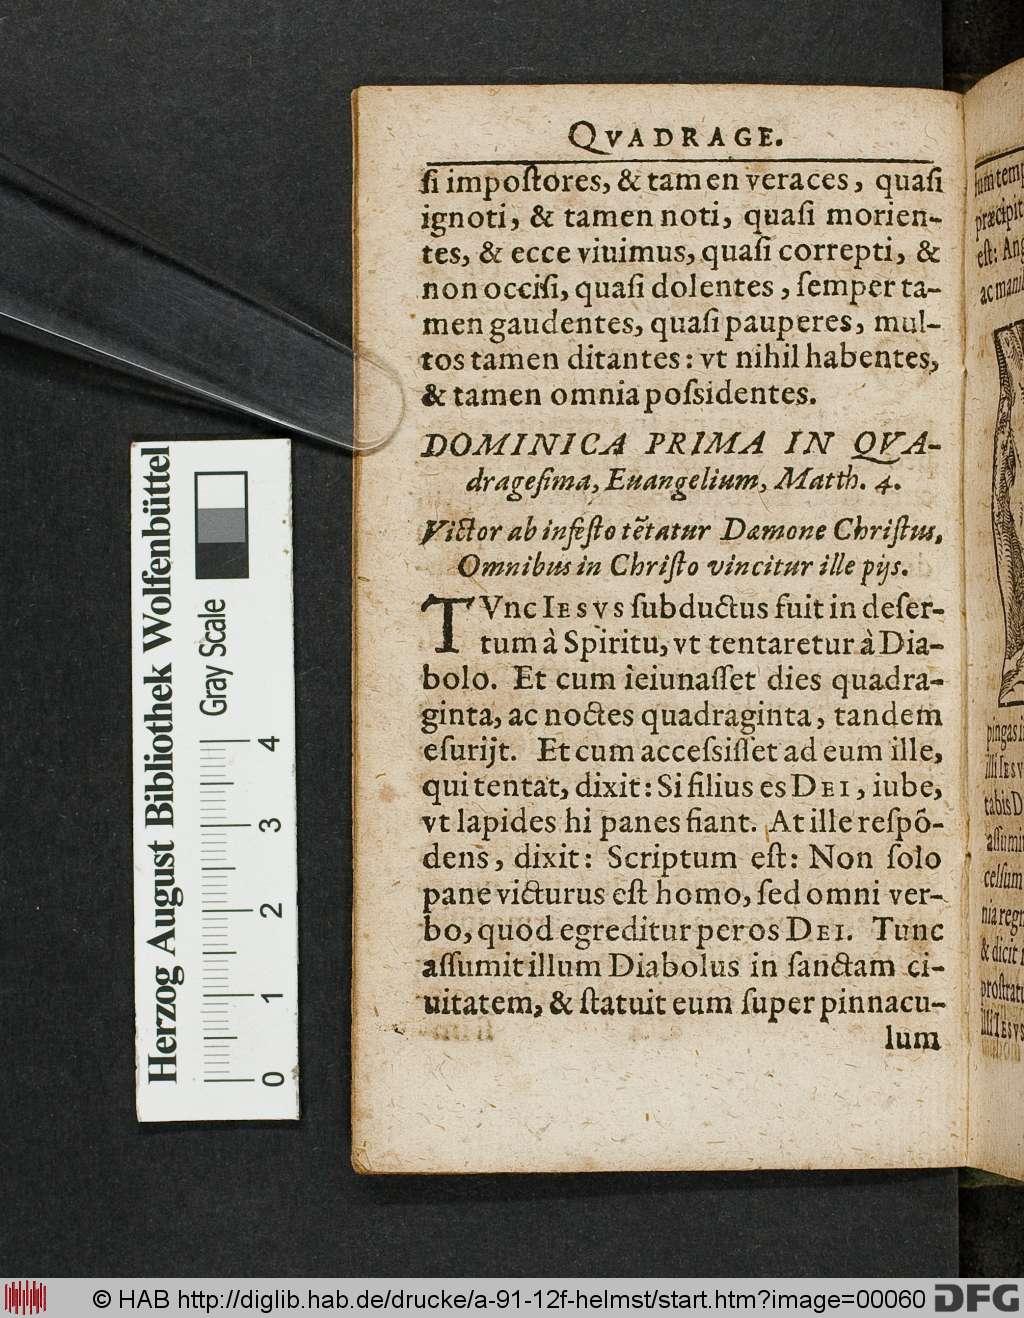 QVADRAGE.
ſi impoſtores, & tamen veraces, quaſi
ignoti, & tamen noti, quaſi morien-
tes, & ecce viuimus, quaſi correpti, &
non occiſi, quaſi dolentes, ſemper ta-
men gaudentes, quaſi pauperes, mul-
tos tamen ditantes: vt nihil habentes,
& tamen omnia poſsidentes.
DOMINICA PRIMA IN QVA-
drageſima, Euangelium, Matth. 4.
Victor ab infeſto tẽtatur Dæmone Chriſtus,
Omnibus in Chriſto vincitur ille pijs.
TVnc IESVS ſubductus fuit in deſer-
tum à Spiritu, vt tentaretur à Dia-
bolo. Et cum ieiunaſſet dies quadra-
ginta, ac noctes quadraginta, tandem
eſurijt. Et cum acceſsiſſet ad eum ille,
qui tentat, dixit: Si filius es DEI, iube,
vt lapides hi panes fiant. At ille reſpõ-
dens, dixit: Scriptum eſt: Non ſolo
pane victurus eſt homo, ſed omni ver-
bo, quod egreditur per os DEI. Tunc
aſſumit illum Diabolus in ſanctam ci-
uitatem, & ſtatuit eum ſuper pinnacu-
lum
præcipit
eſt: Ang
ac mani
pingas i
illi IESV
tabis D
aſſumit
celſum
nia regn
& dicit i
proſtratu
illi IESVS
Herzog August Bibliothek Wolfenbüttel
Gray Scale
0 1 2 3 4
© HAB http://diglib.hab.de/drucke/a-91-12f-helmst/start.htm?image=00060
DFG